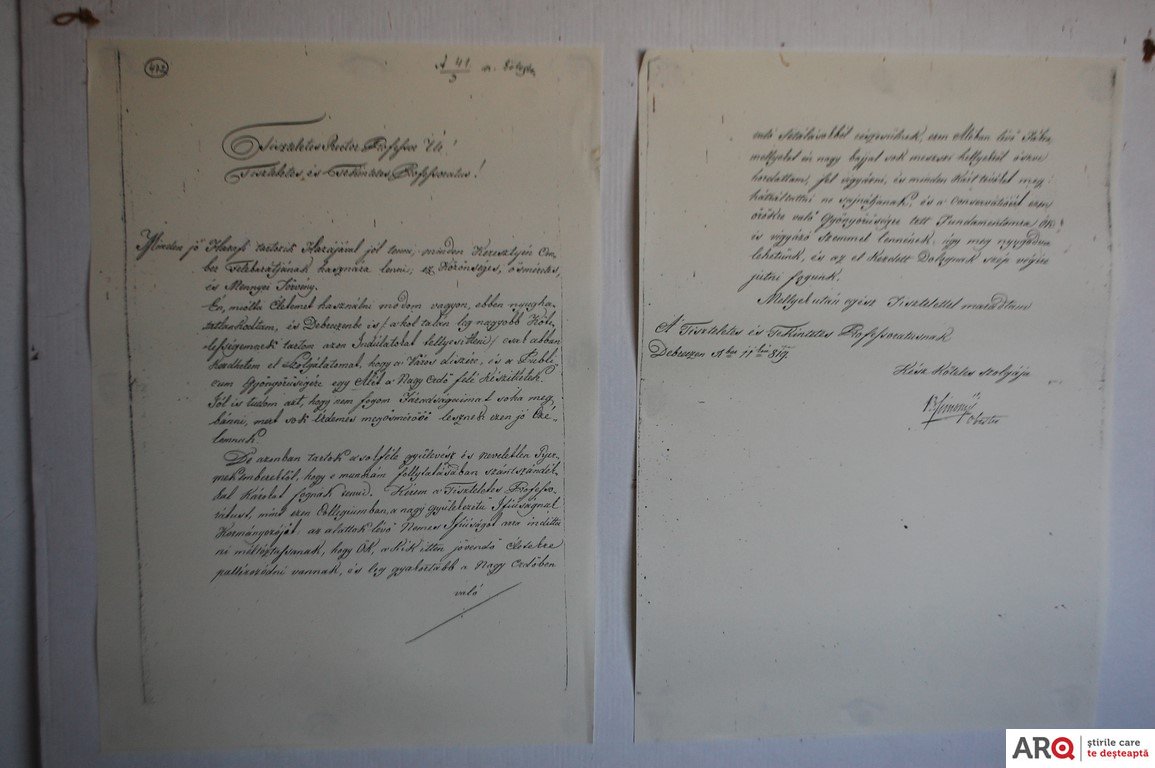 472
A 41
3
Tiszteletes Rector Professor Úr!
Tiszteletes, és Tekintetes Professoratus!
Minden jó Hazafi tartozik Hazájával jól tenni, minden Keresztyén Em-
ber Felebarátjának hasznára lenni, ez Közönséges, esmeretes,
és Mennyei Törvény.
Én, miólta Életemet használni módom vagyon, ebben nyugha-
tatlankodtam, és Debreczenbe is / a hol talán leg nagyobb Köte-
lességemnek tartom azon Indúlatokat tellyesíteni / ezt abban
kezdhetem el Szolgálatomat, hogy a Város díszére, és a Publi-
cum Gyönyörűségére egy a Nagy Erdő felé Készítetek.
Jól is tudom azt, hogy nem fogom Fáradságaimat soha meg-
bánni, mert sok Érdemes megösmérői lesznek ezen jó Czé-
lomnak.
De azonban tartok a sokféle gyülevész és neveletlen Gyer-
mek emberektől, hogy e munkám follytatásában szántszándék-
kal Károkat fognak tenni. Kérem a Tiszteletes Professo-
ratust, mint ezen Collegiumban, a nagy gyülekezetű Ifiúságnak
Kormányozóját az alattok lévő Nemes Ifiúságot arra indítta-
ni méltóztassanak, hogy Ők, a kik itten jövendő Életekre
pallérozódni vannak, és leg gyakortább a Nagy Erdőben
való
való Sétálásokból részesülnek, ezen Állóban lévő Fákra,
mellyeket én nagy bajjal sok messze hellyekről öszve
hordattam, fel vigyázni, és minden Kárt tévőket meg-
hátráltatni ne sajnáljanak, és a Conservatióját ezen
örökre való Gyönyörűségre tett Fundamentomra Ők
is vigyázó szemmel lennének, úgy meg nyugodva
lehetünk, és az el kezdett Dolognak szép végire
jutni fogunk.
Mellyek után egész Tisztelettel maradtam
A Tiszteletes és Tekintetes Professoratusnak
Debreczen 11 819.
Kész Köteles szolgája
Simonyi
Obester
ARQ
știrile care
te deșteaptă